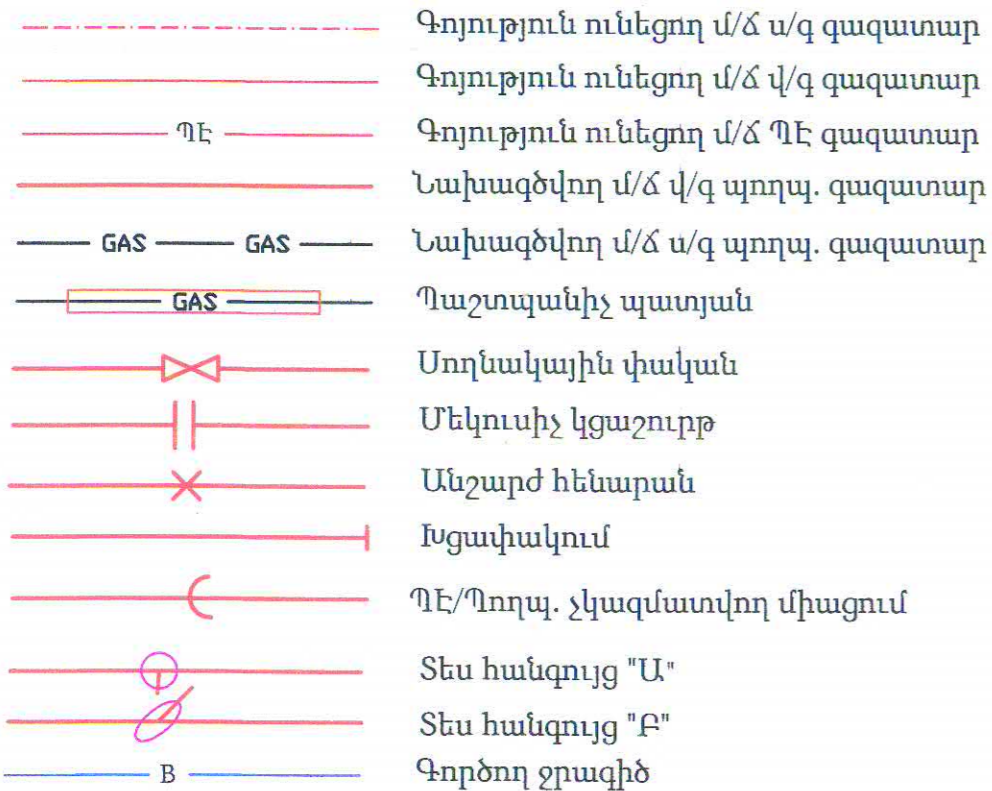 Գոյություն ունեցող մ/ճ ս/գ գազատար
Գոյություն ունեցող մ/ճ վ/գ գազատար
ՊԷ Գոյություն ունեցող մ/ճ ՊԷ գազատար
Նախագծվող մ/ճ վ/գ պողպ. գազատար
GAS GAS Նախագծվող մ/ճ ս/գ պողպ. գազատար
GAS Պաշտպանիչ պատյան
Սողնակային փական
Մեկուսիչ կցաշուրթ
Անշարժ հենարան
Խցափակում
ՊԷ/Պողպ. չկազմատվող միացում
Տես հանգույց "Ա"
Տես հանգույց "Բ"
B Գործող ջրագիծ